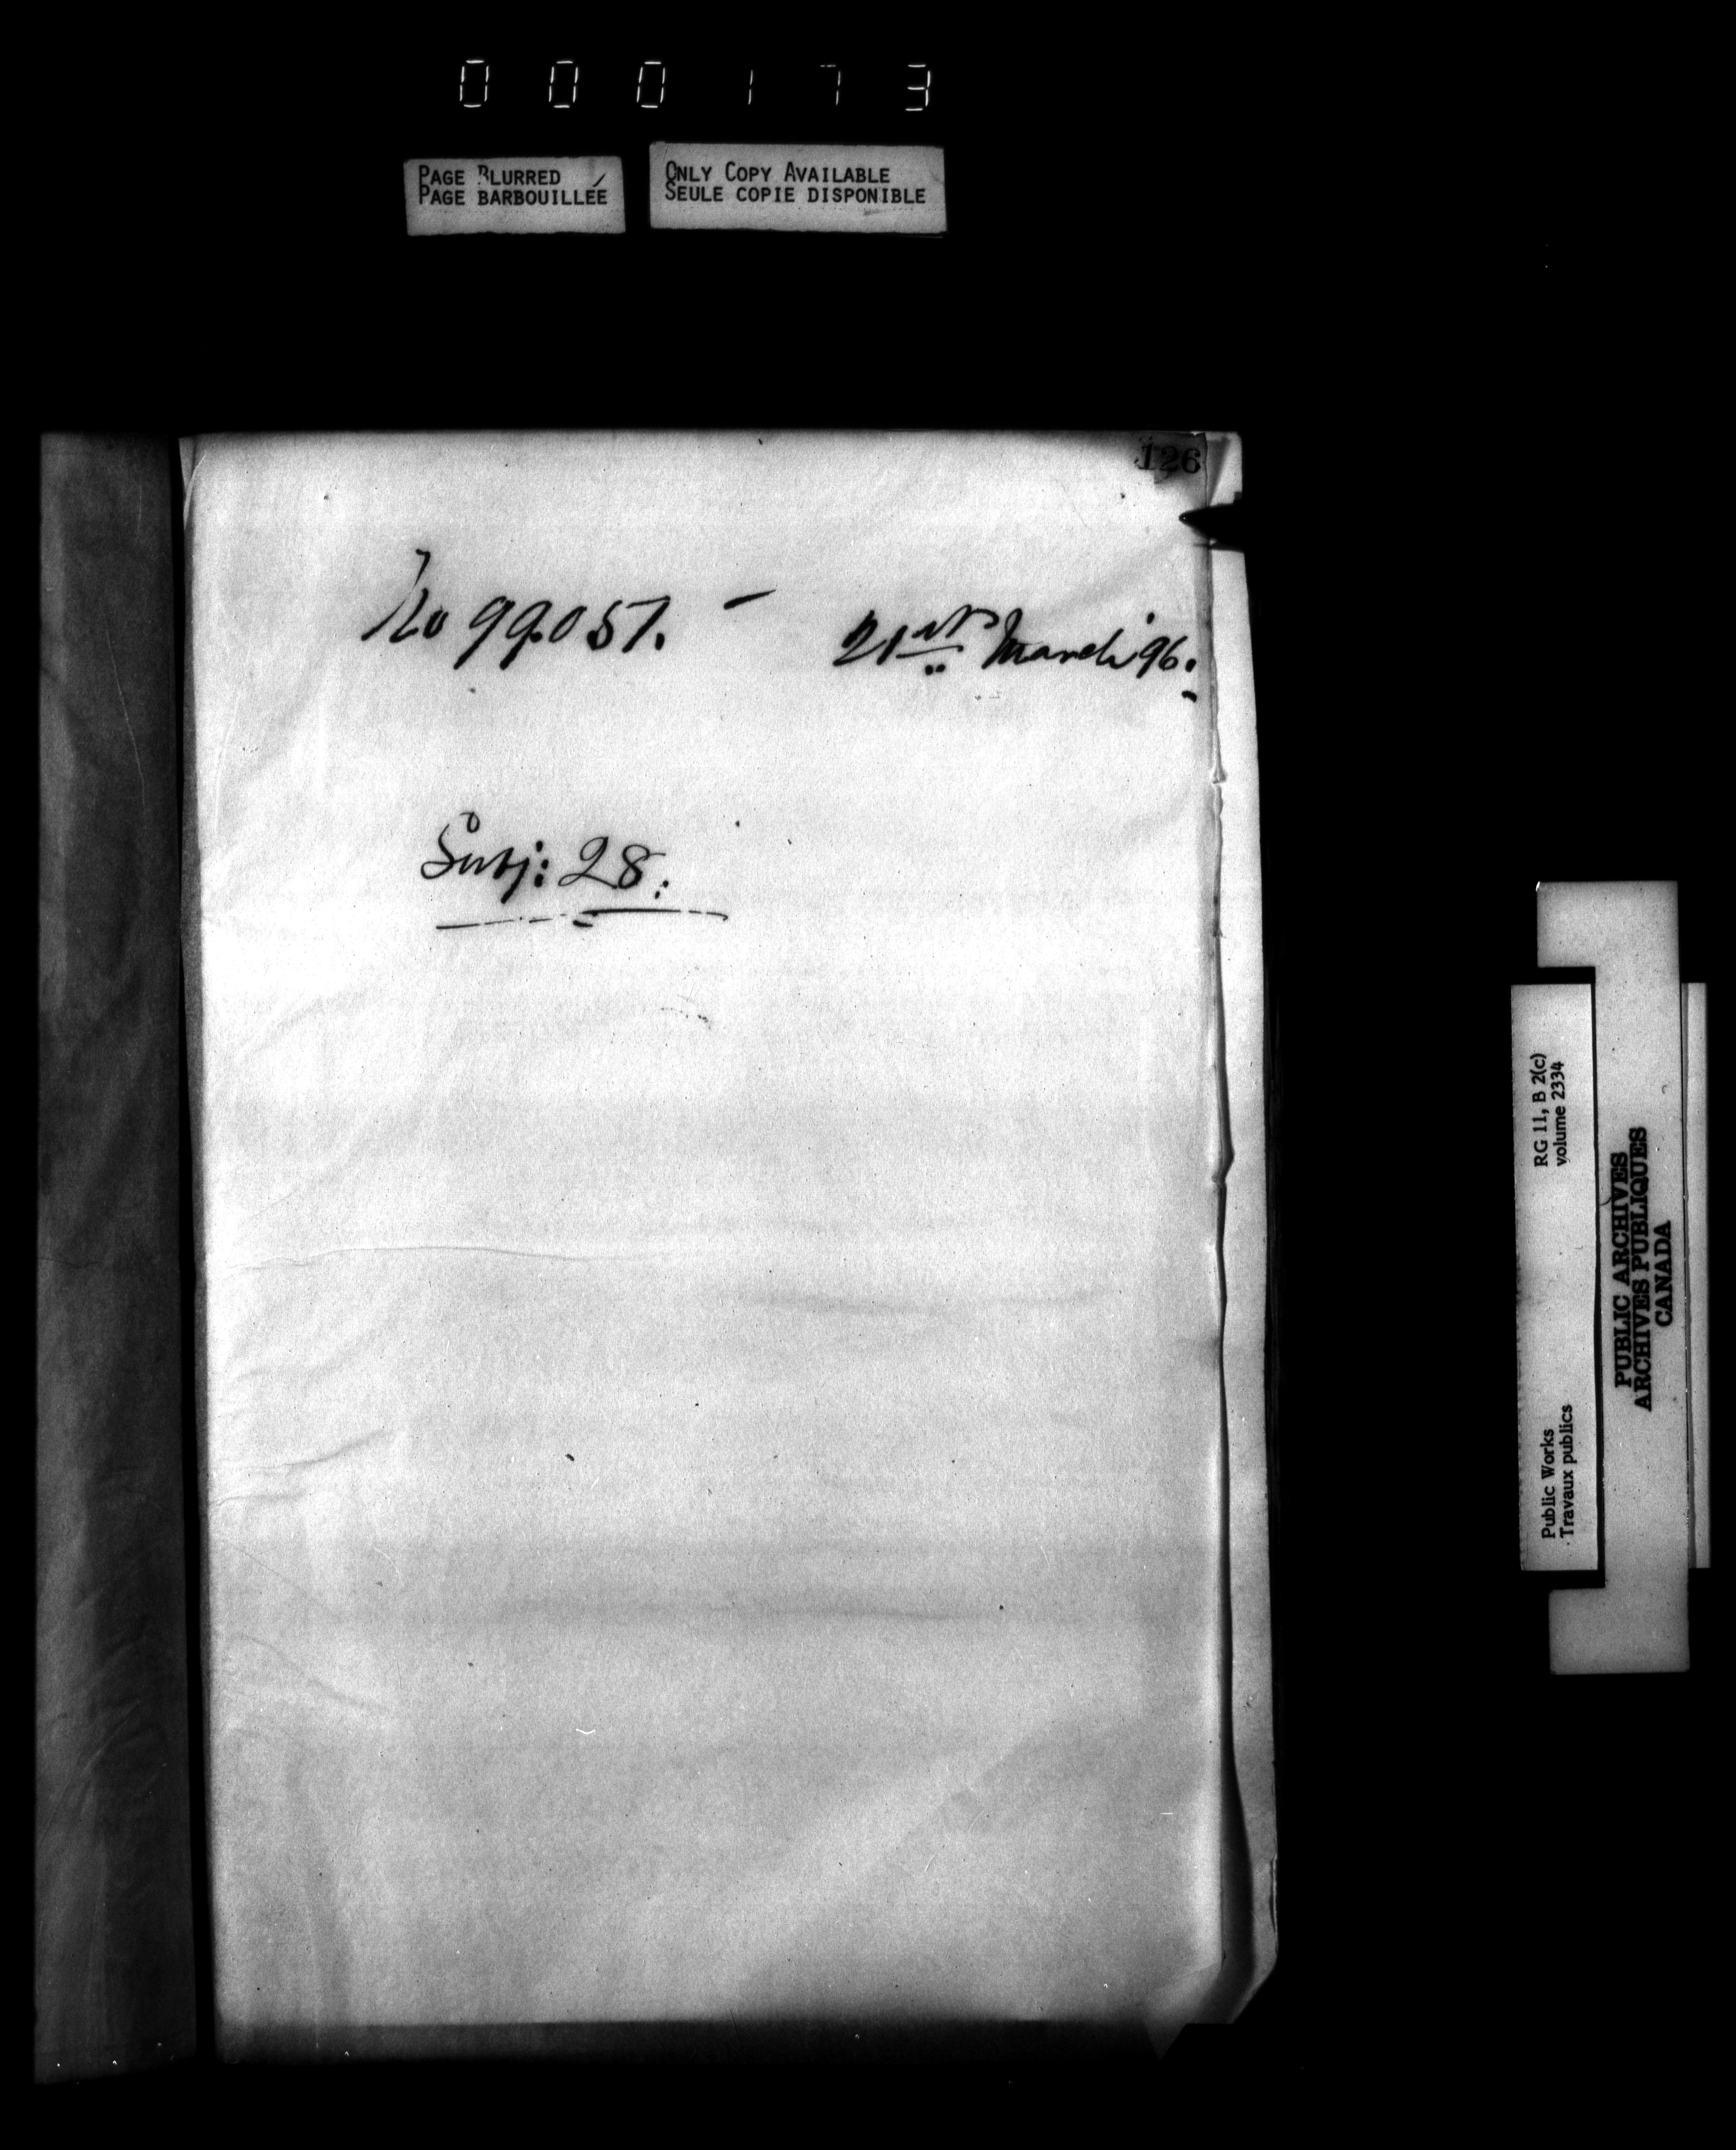 000173
PAGE BLURRED
PAGE BARBOUILLÉE
ONLY COPY AVAILABLE
SEULE COPIE DISPONIBLE
126
No 99.057. –
21st March '96.
Subj: 28.
Public Works
Travaux publics
RG 11, B 2(c)
volume 2334
PUBLIC ARCHIVES
ARCHIVES PUBLIQUES
CANADA